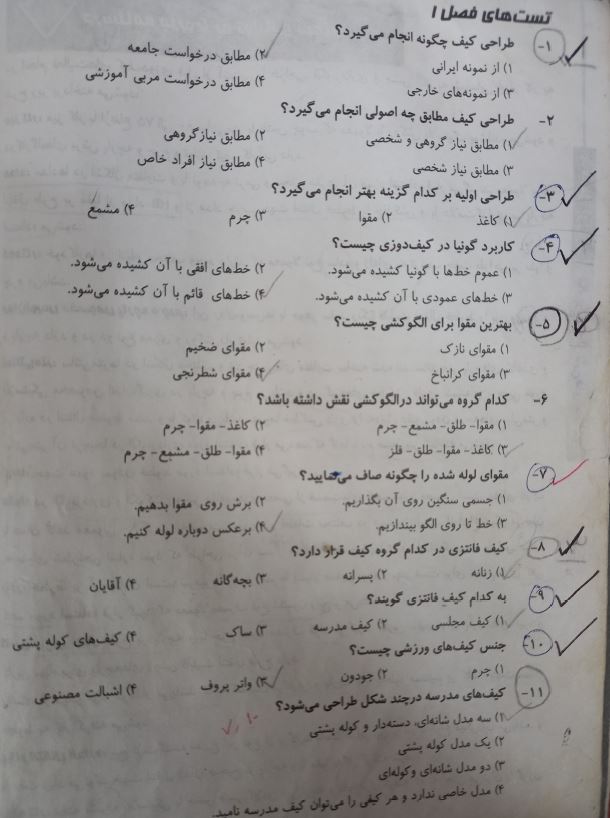 تست‌های فصل ۱
۱- طراحی کیف چگونه انجام می‌گیرد؟
۱) از نمونه ایرانی ۲) مطابق درخواست جامعه
۳) از نمونه‌های خارجی ۴) مطابق درخواست مربی آموزشی
۲- طراحی کیف مطابق چه اصولی انجام می‌گیرد؟
۱) مطابق نیاز گروهی و شخصی ۲) مطابق نیازگروهی
۳) مطابق نیاز شخصی ۴) مطابق نیاز افراد خاص
۳- طراحی اولیه بر کدام گزینه بهتر انجام می‌گیرد؟
۱) کاغذ ۲) مقوا ۳) چرم ۴) مشمع
۴- کاربرد گونیا در کیف‌دوزی چیست؟
۱) عموم خط‌ها با گونیا کشیده می‌شود. ۲) خط‌های افقی با آن کشیده می‌شود.
۳) خط‌های عمودی با آن کشیده می‌شود. ۴) خط‌های قائم با آن کشیده می‌شود.
۵- بهترین مقوا برای الگوکشی چیست؟
۱) مقوای نازک ۲) مقوای ضخیم
۳) مقوای کرانباخ ۴) مقوای شطرنجی
۶- کدام گروه می‌تواند درالگوکشی نقش داشته باشد؟
۱) مقوا- طلق- مشمع- چرم ۲) کاغذ- مقوا- چرم
۳) کاغذ- مقوا- طلق- فلز ۴) مقوا- طلق- مشمع- چرم
۷- مقوای لوله شده را چگونه صاف می‌نمایید؟
۱) جسمی سنگین روی آن بگذاریم. ۲) برش روی مقوا بدهیم.
۳) خط تا روی الگو بیندازیم. ۴) برعکس دوباره لوله کنیم.
۸- کیف فانتزی در کدام گروه کیف قرار دارد؟
۱) زنانه ۲) پسرانه ۳) بچه‌گانه ۴) آقایان
۹- به کدام کیف فانتزی گویند؟
۱) کیف مجلسی ۲) کیف مدرسه ۳) ساک ۴) کیف‌های کوله پشتی
۱۰- جنس کیف‌های ورزشی چیست؟
۱) چرم ۲) جودون ۳) واتر پروف ۴) اشبالت مصنوعی
۱۱- کیف‌های مدرسه درچند شکل طراحی می‌شود؟
۱) سه مدل شانه‌ای، دسته‌دار و کوله پشتی
۲) یک مدل کوله پشتی
۳) دو مدل شانه‌ای وکوله‌ای
۴) مدل خاصی ندارد و هر کیفی را می‌توان کیف مدرسه نامید.